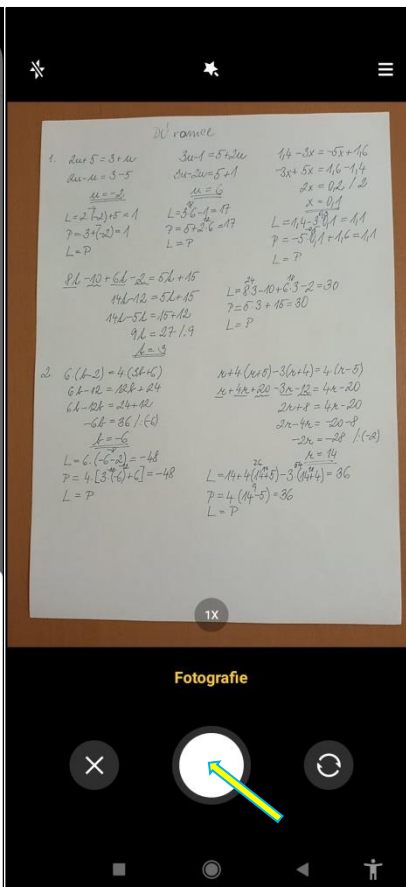 DÚ rovnice
1. 2u+5 = 3+u
2u-u = 3-5
u = -2
L = 2·(-2)+5 = 1
P = 3+(-2) = 1
L = P
3u-1 = 5+2u
3u-2u = 5+1
u = 6
L = 3·6-1 = 17
P = 5+2·6 = 17
L = P
1,4-3x = -5x+1,6
-3x+5x = 1,6-1,4
2x = 0,2 /:2
x = 0,1
L = 1,4-3·0,1 = 1,1
P = -5·0,1+1,6 = 1,1
L = P
8k-10+6k-2 = 5k+15
14k-12 = 5k+15
14k-5k = 15+12
9k = 27 /:9
k = 3
L = 8·3-10+6·3-2 = 30
P = 5·3+15 = 30
L = P
2. 6(k-2) = 4(3k+6)
6k-12 = 12k+24
6k-12k = 24+12
-6k = 36 /:(-6)
k = -6
L = 6·(-6-2) = -48
P = 4·[3·(-6)+6] = -48
L = P
r+4(r+5)-3(r+4) = 4(r-5)
r+4r+20-3r-12 = 4r-20
2r+8 = 4r-20
2r-4r = -20-8
-2r = -28 /:(-2)
r = 14
L = 14+4(14+5)-3·(14+4) = 36
P = 4·(14-5) = 36
L = P
1X
Fotografie